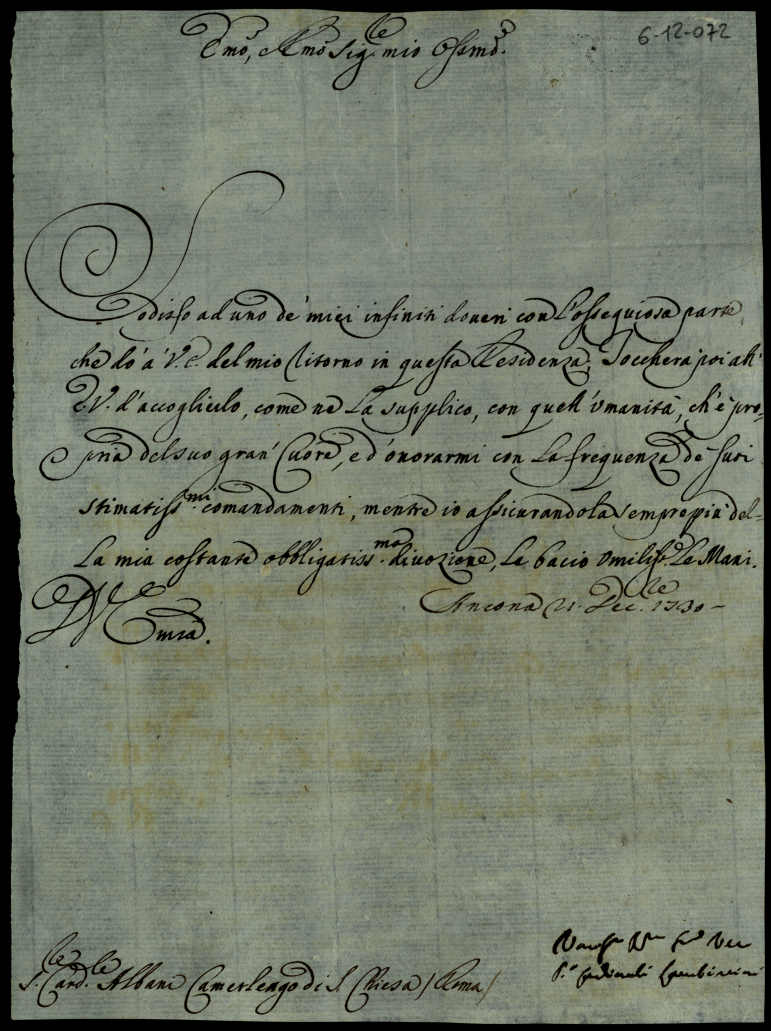 6-12-072
Emo, e Rmo Sig.re mio Ossmo.
Sodisfo ad uno de' miei infiniti doveri con l'ossequiosa parte,
che dò à V.E. del mio ritorno in questa Residenza. Toccherà poi all'
E.V. d'accoglierlo, come ne La supplico, con quell'vmanità, ch'è pro-
pria del suo gran' Cuore, e d'onorarmi con La frequenza de' suoi
stimatiss.mi comandamenti, mentre io assicurandola sempre più del-
La mia costante obbligatiss.ma divozione, La bacio vmiliss.te Le Mani.
Ancona 21. Dec.re 1730-
D V E
S.r Card.le Albani Camerlengo di S. Chiesa / Roma /